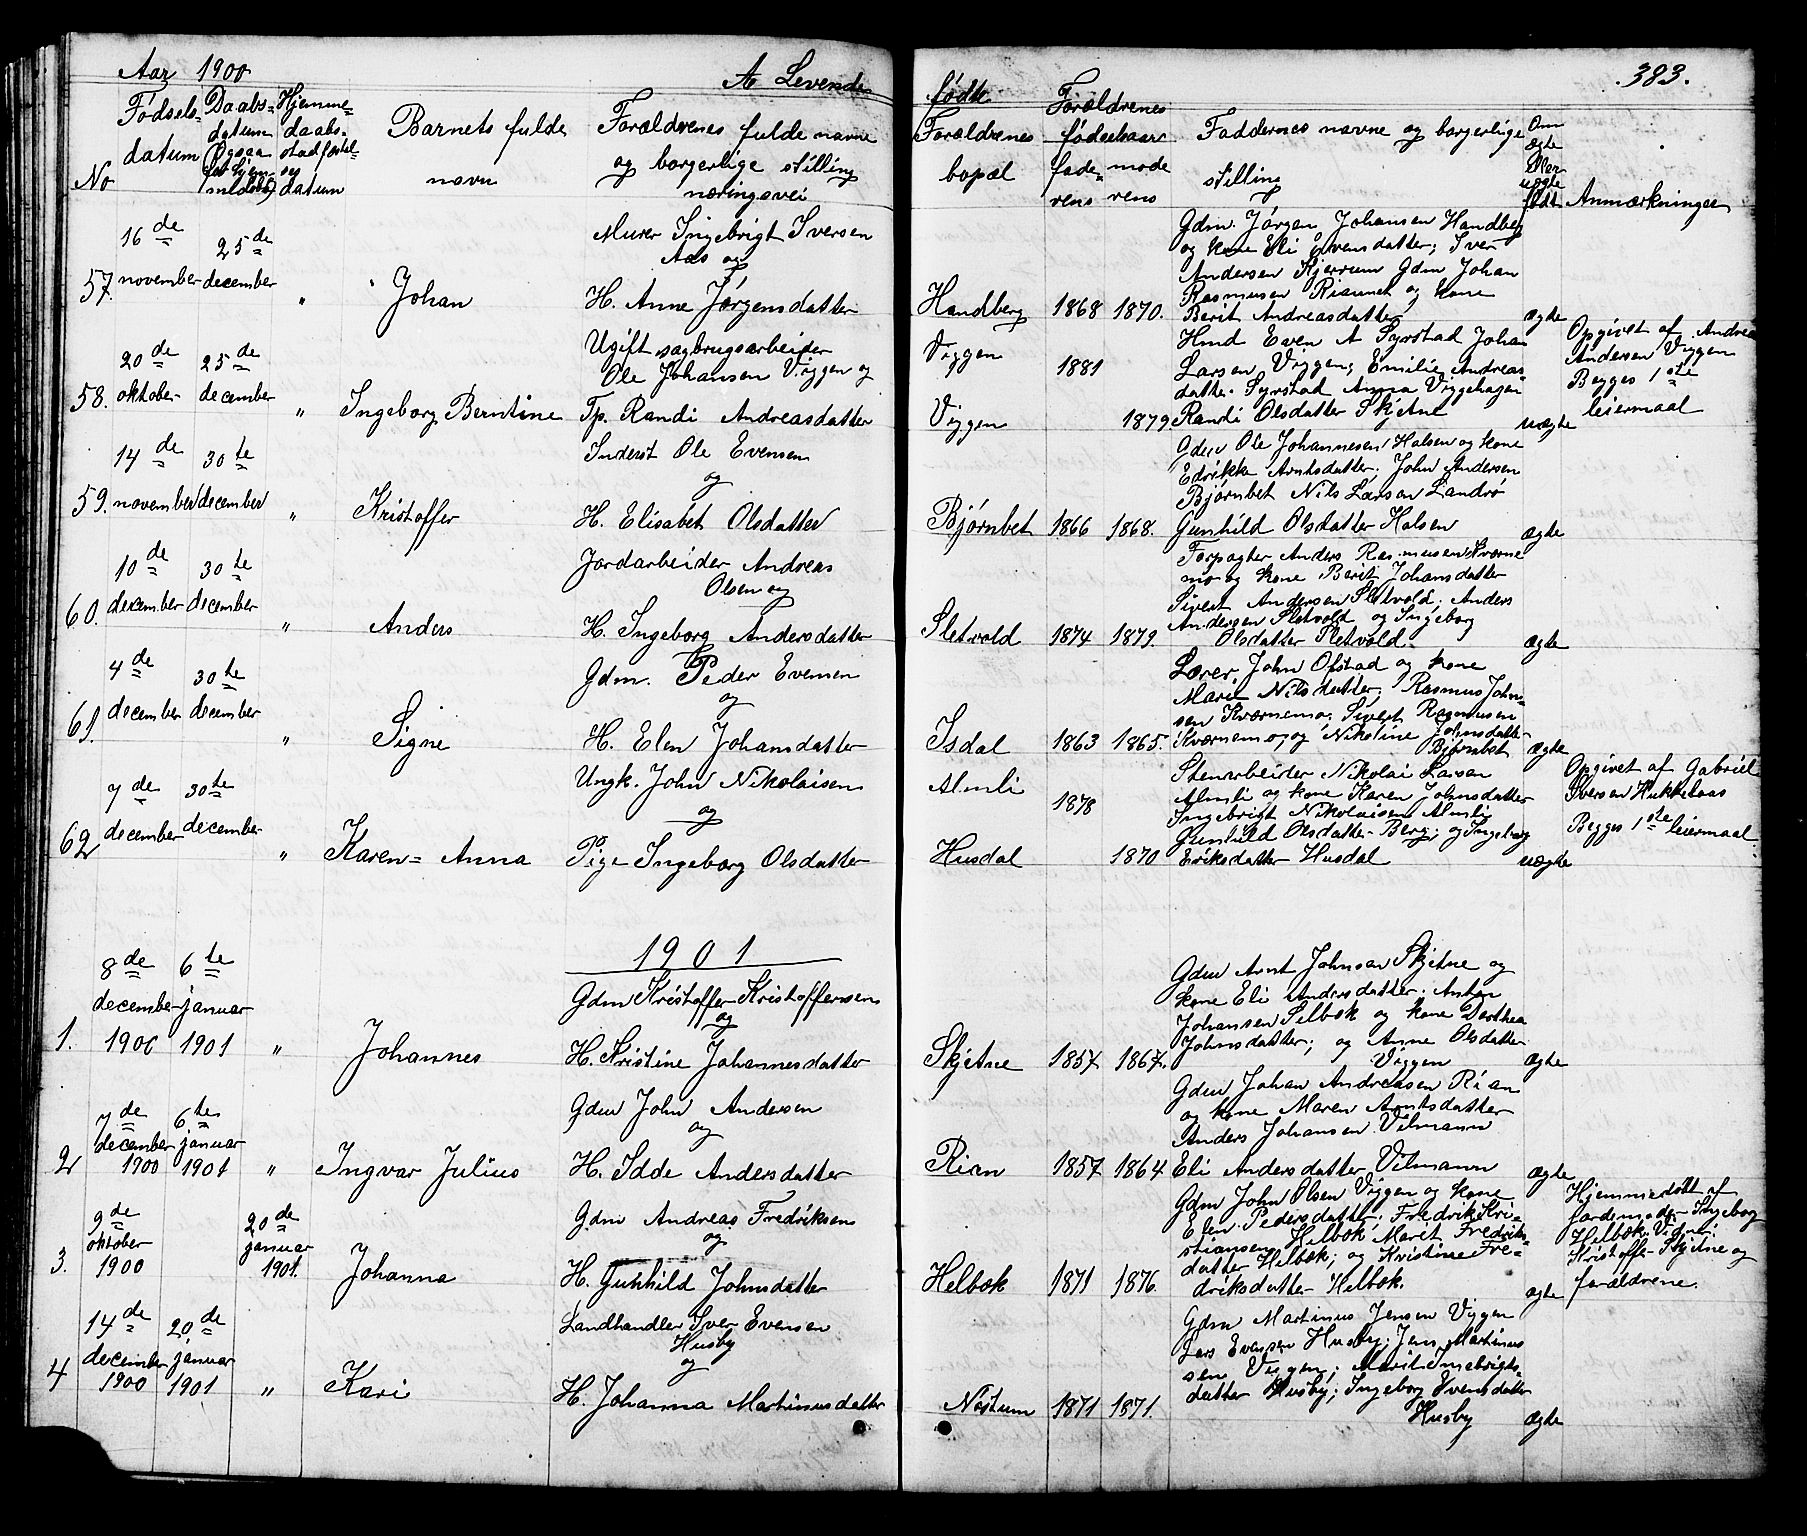 Aar 1900
A Levende
No
Fødsels-
datum
Daabs-
datum
Ogsaa
for hjem-
medøbt
Hjemme-
daabs-
stadfæstel-
se
datum
Barnets fulde
navn
Forældrenes fulde navne
og borgerlige stilling
næringsvei
fødte
383.
Forældrenes
bopæl
Forældrenes
fødselsaar
fade-
rens
mode
rens
Faddernes navne og borgerlige
stilling
Om
ægte
eller
uægte
født
Anmærkninger
57.
16de
november
25de
december
"
Johan
Murer Ingebrigt Iversen
Aas og
H. Anne Jørgensdatter
Handberg 1868 1870.
Gdm. Jørgen Johansen Handberg
og kone Eli Evensdatter; Iver
Andersen Kjerrum Gdm Johan
Rasmusen og kone
Berit Andreasdatter
ægte
58.
20de
oktober
25de
december
"
Ingeborg Berntine
Ugift sagbrugsarbeider
Ole Johansen Viggen og
Tp. Randi Andreasdatter
Viggen 1881
Viggen 1879
Hmd Even A Syrstad Johan
Larsen Viggen; Emilie Andreas-
datter Syrstad Anna Viggehagen
Randi Olsdatter Skjetne
uægte
Opgivet af Andreas
Andersen Viggen
Begges 1ste
leiermaal
59.
14de
november
30te
december
"
Kristoffer
Inderst Ole Evensen
og
H. Elisabet Olsdatter
Bjørnbet 1866 1868.
Gdm Ole Johannesen Halsen og kone
Edrikke Arntsdatter. John Andersen
Bjørnbet Nils Larsen Landrø
Gunhild Olsdatter Halsen
ægte
60.
10de
december
30te
december
"
Anders
Jordarbeider Andreas
Olsen og
H. Ingeborg Andersdatter
Sletvold 1874 1879.
Forpagter Anders Rasmusen Kværne
mo og kone Berit Johansdatter
Sivert Andersen Sletvold; Anders
Andersen Sletvold og Ingeborg
Olsdatter Sletvold
ægte
61.
4de
december
30te
december
"
Signe
Gdm. Peder Evensen
og
H. Elen Johansdatter
Isdal 1863 1865.
Lærer John Ofstad og kone
Marie Nilsdatter; Rasmus John-
sen Kværnemo; Sivert Rasmusen
Kværnemo og Nikoline Johnsdatter
Bjørnbet
ægte
62
7de
december
30te
december
"
Karen-Anna
Ungk. John Nikolaisen
og
Pige Ingeborg Olsdatter
Almli 1878
Husdal 1870
Stenarbeider Nikolai Larsen
Almli og kone Karen Johnsdatter
Ingebrigt Nikolaisen Almli
Gunhild Olsdatter Berg; og Ingeborg
Eriksdatter Husdal
uægte
Opgivet af Gabriel
Iversen Hukkelaas
Begges 1ste leiermaal.
1901
1.
8de
december
1900
6te
januar
1901
"
Johannes
Gdm Kristoffer Kristoffersen
og
H. Kristine Johannesdatter
Skjetne 1857 1867.
Gdm Arnt Johnsen Skjetne og
kone Eli Andersdatter. Anton
Johansen Selbek og kone Dorthea
Johnsdatter; og Anne Olsdatter
Viggen
ægte
2
7de
december
1900
6te
januar
1901
"
Ingvar Julius
Gdm John Andersen
og
H. Idde Andersdatter
Rian 1857 1864
Gdm Johan Andreasen Rian
og kone Maren Arntsdatter
Anders Johansen Vilmann
Eli Andersdatter Vilmann
ægte
3.
9de
oktober
1900
20de
januar
1901.
Johanna
Gdm Andreas Fredriksen
og
H. Gunhild Johnsdatter
Helbok 1871 1876.
Gdm John Olsen Viggen og kone
Elen Pedersdatter; Fredrik Kri-
stiansen Helbok Maret Fredriks-
datter Helbok; og Kristine Fre-
driksdatter Helbok.
ægte
Hjemmedøbt af
jordemoder Ingeborg
Helbok
Kristoffer Skjetne og
forældrene.
4
14de
december
1900
20de
januar
1901
"
Kari
Landhandler Iver Evensen
Husby
og
H. Johanna Martinusdatter
Nøstum 1871 1871.
Gdm Martinus Jensen Viggen
Lars Evensen Husby; Jens Martinus
sen Viggen; Marit Ingebrigts-
datter Husby; Ingeborg Evensdatter
Husby
ægte